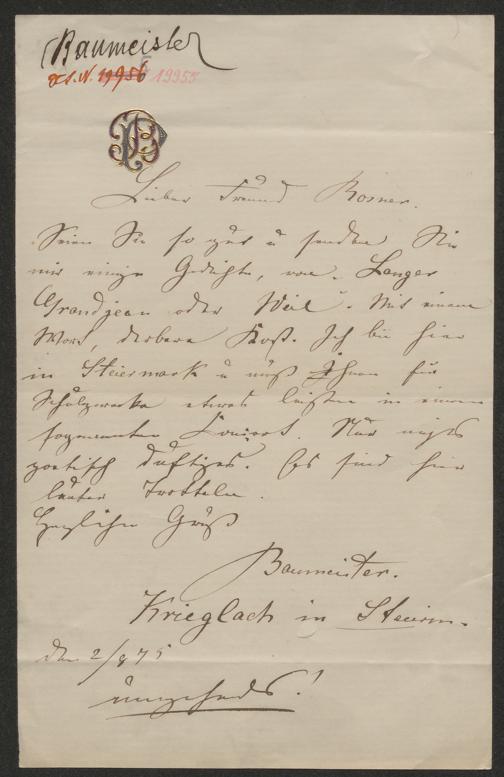 (Baumeister
Act. N. 19956 19955
PB
Lieber Freund Rosner.
Seien Sie so gut u senden Sie
mir einige Gedichte, von Langer
Grandjean oder Weil". Mit einem
Wort, derbere Kost. Ich bin hier
in Steiermark u muß Ihnen für
Schulzwecke etwas leisten in einem
sogenannten Concert. Nur nichts
poetisch duftiges. Es sind hier
lauter Trotteln.
Herzlichen Gruß
Baumeister.
Krieglach in Steierm.
den 2/8 75
umgehends!